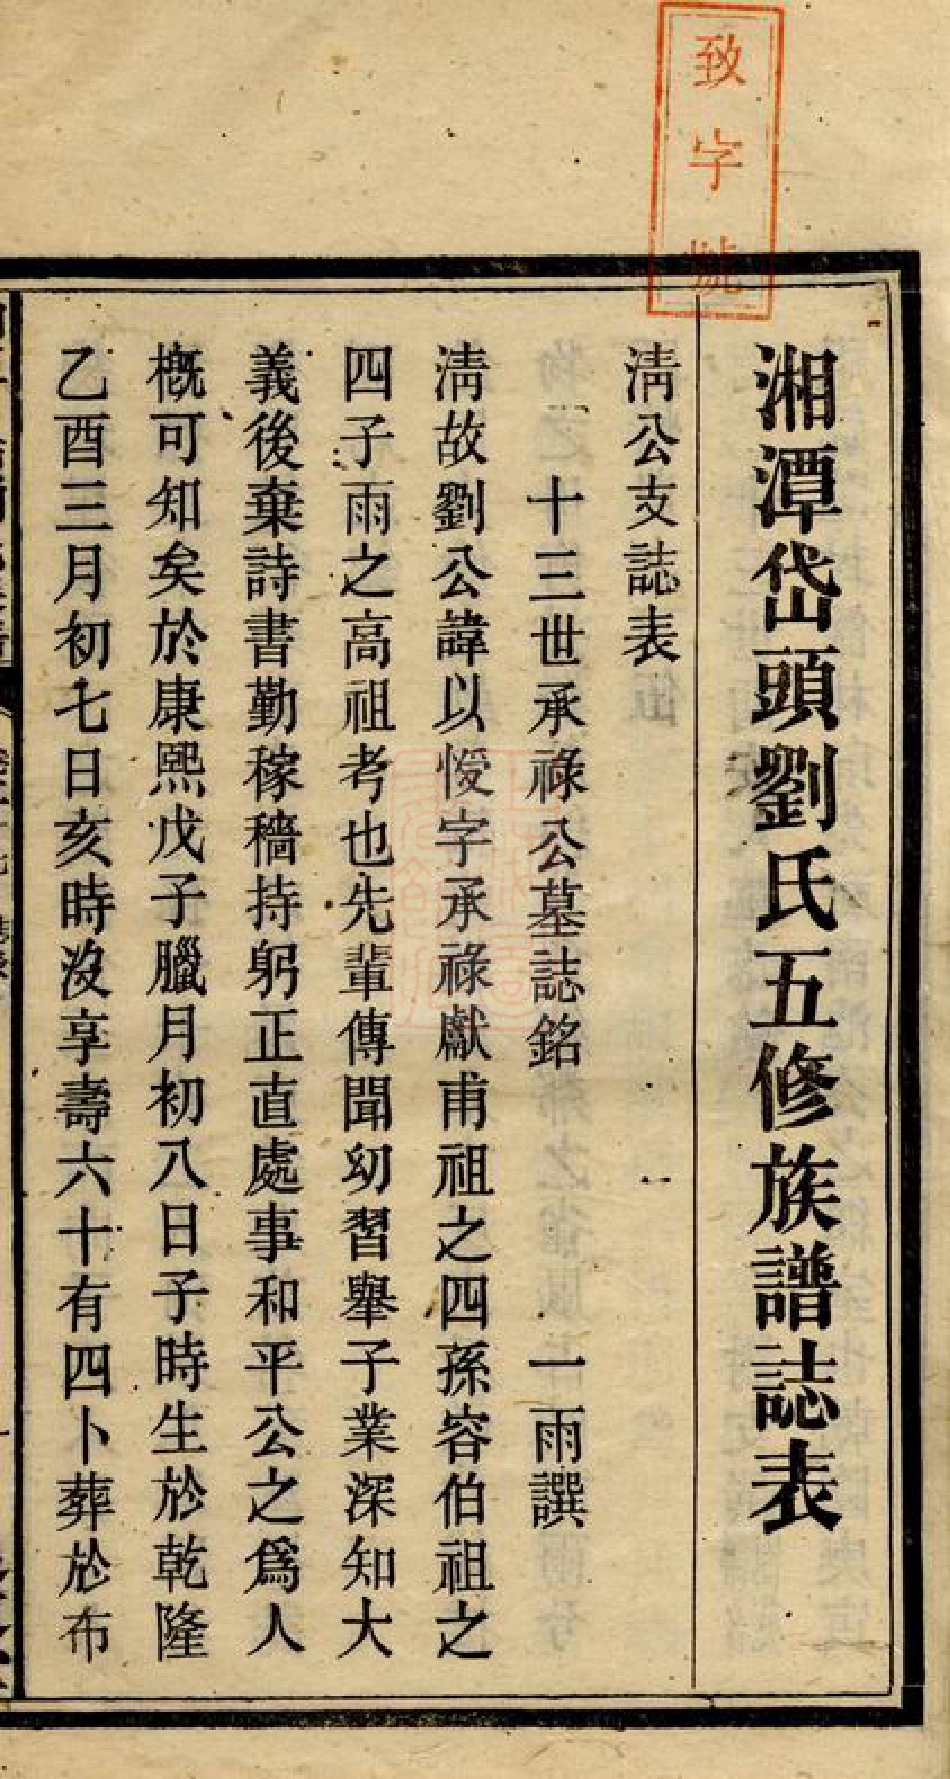 致字號
湘潭岱頭劉氏五修族譜誌表
淸公支誌表
十三世承祿公墓誌銘　一雨譔
淸故劉公諱以懓字承祿獻甫祖之四孫容伯祖之
四子雨之高祖考也先輩傳聞幼習舉子業深知大
義後棄詩書勤稼穡持躬正直處事和平公之爲人
槪可知矣於康熙戊子臘月初八日子時生於乾隆
乙酉三月初七日亥時沒享壽六十有四卜葬於布